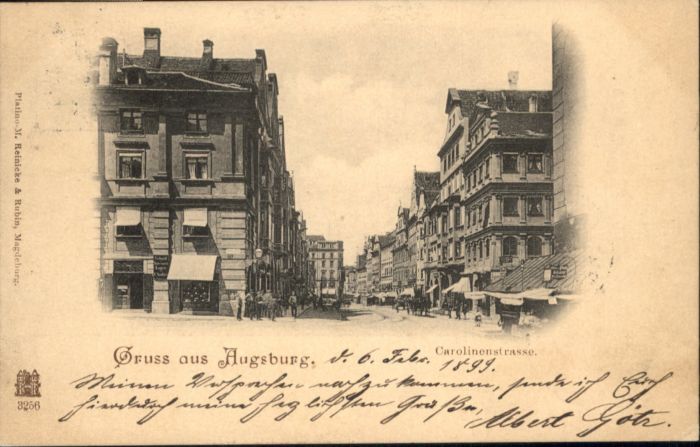 Gruss aus Augsburg, d. 6. Febr. 1899.
Carolinenstrasse.
Meinem Versprechen nachzukommen, sende ich Euch
hierdurch meine herzlichsten Grüße,
Albert Götz.
Platino-M. Reinicke & Rubin, Magdeburg.
3256